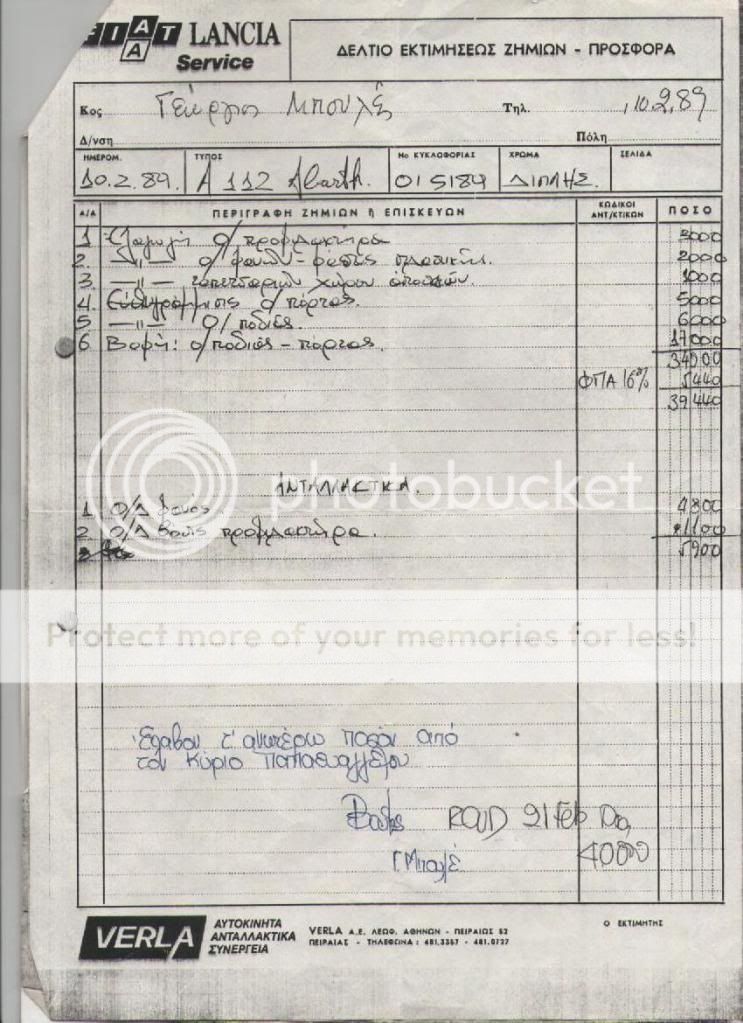 FIAT LANCIA
Service
ΔΕΛΤΙΟ ΕΚΤΙΜΗΣΕΩΣ ΖΗΜΙΩΝ - ΠΡΟΣΦΟΡΑ
Κος Γεώργιος Μπουλέ Τηλ. 10.2.89
Δ/νση Πόλη
ΗΜΕΡΟΜ. ΤΥΠΟΣ Νο ΚΥΚΛΟΦΟΡΙΑΣ ΧΡΩΜΑ ΣΕΛΙΔΑ
10.2.89. A 112 Abarth. 015189 ΔΙΠΛΗΣ.
Α/Α ΠΕΡΙΓΡΑΦΗ ΖΗΜΙΩΝ ή ΕΠΙΣΚΕΥΩΝ ΚΩΔΙΚΟΙ ΑΝΤ/ΚΤΙΚΩΝ ΠΟΣΟ
1 Αλλαγή Δ/προφλακτήρα 3000
2. —„— Δ/φανών - πλαστικής. 2000
3. —„— ταπετσαριών χώρου αποσκευών. 1000
4. Ευθυγράμμισις Δ/πόρτας. 5000
5 —„— Δ/ποδιάς. 6000
6 Βαφή: Δ/ποδιάς - πόρτας. 17000
34000
ΦΠΑ 16% 5440
39440
photobucket
ΑΝΤΑΛΛΑΚΤΙΚΑ.
1 Ο/Δ φανός. 4800
2. Ο/Δ προφλακτήρα. 1100
5900
Protect more of your memories for less!
Έλαβον τ' ανωτέρω ποσόν από
τον Κύριο Παπαευαγγέλου
21 Feb
4000
Γ. Μπουλέ
VERLA
ΑΥΤΟΚΙΝΗΤΑ
ΑΝΤΑΛΛΑΚΤΙΚΑ
ΣΥΝΕΡΓΕΙΑ
VERLA Α.Ε. ΛΕΩΦ. ΑΘΗΝΩΝ - ΠΕΙΡΑΙΩΣ 52
ΠΕΙΡΑΙΑΣ - ΤΗΛΕΦΩΝΑ: 481.3357 - 481.0727
Ο ΕΚΤΙΜΗΤΗΣ